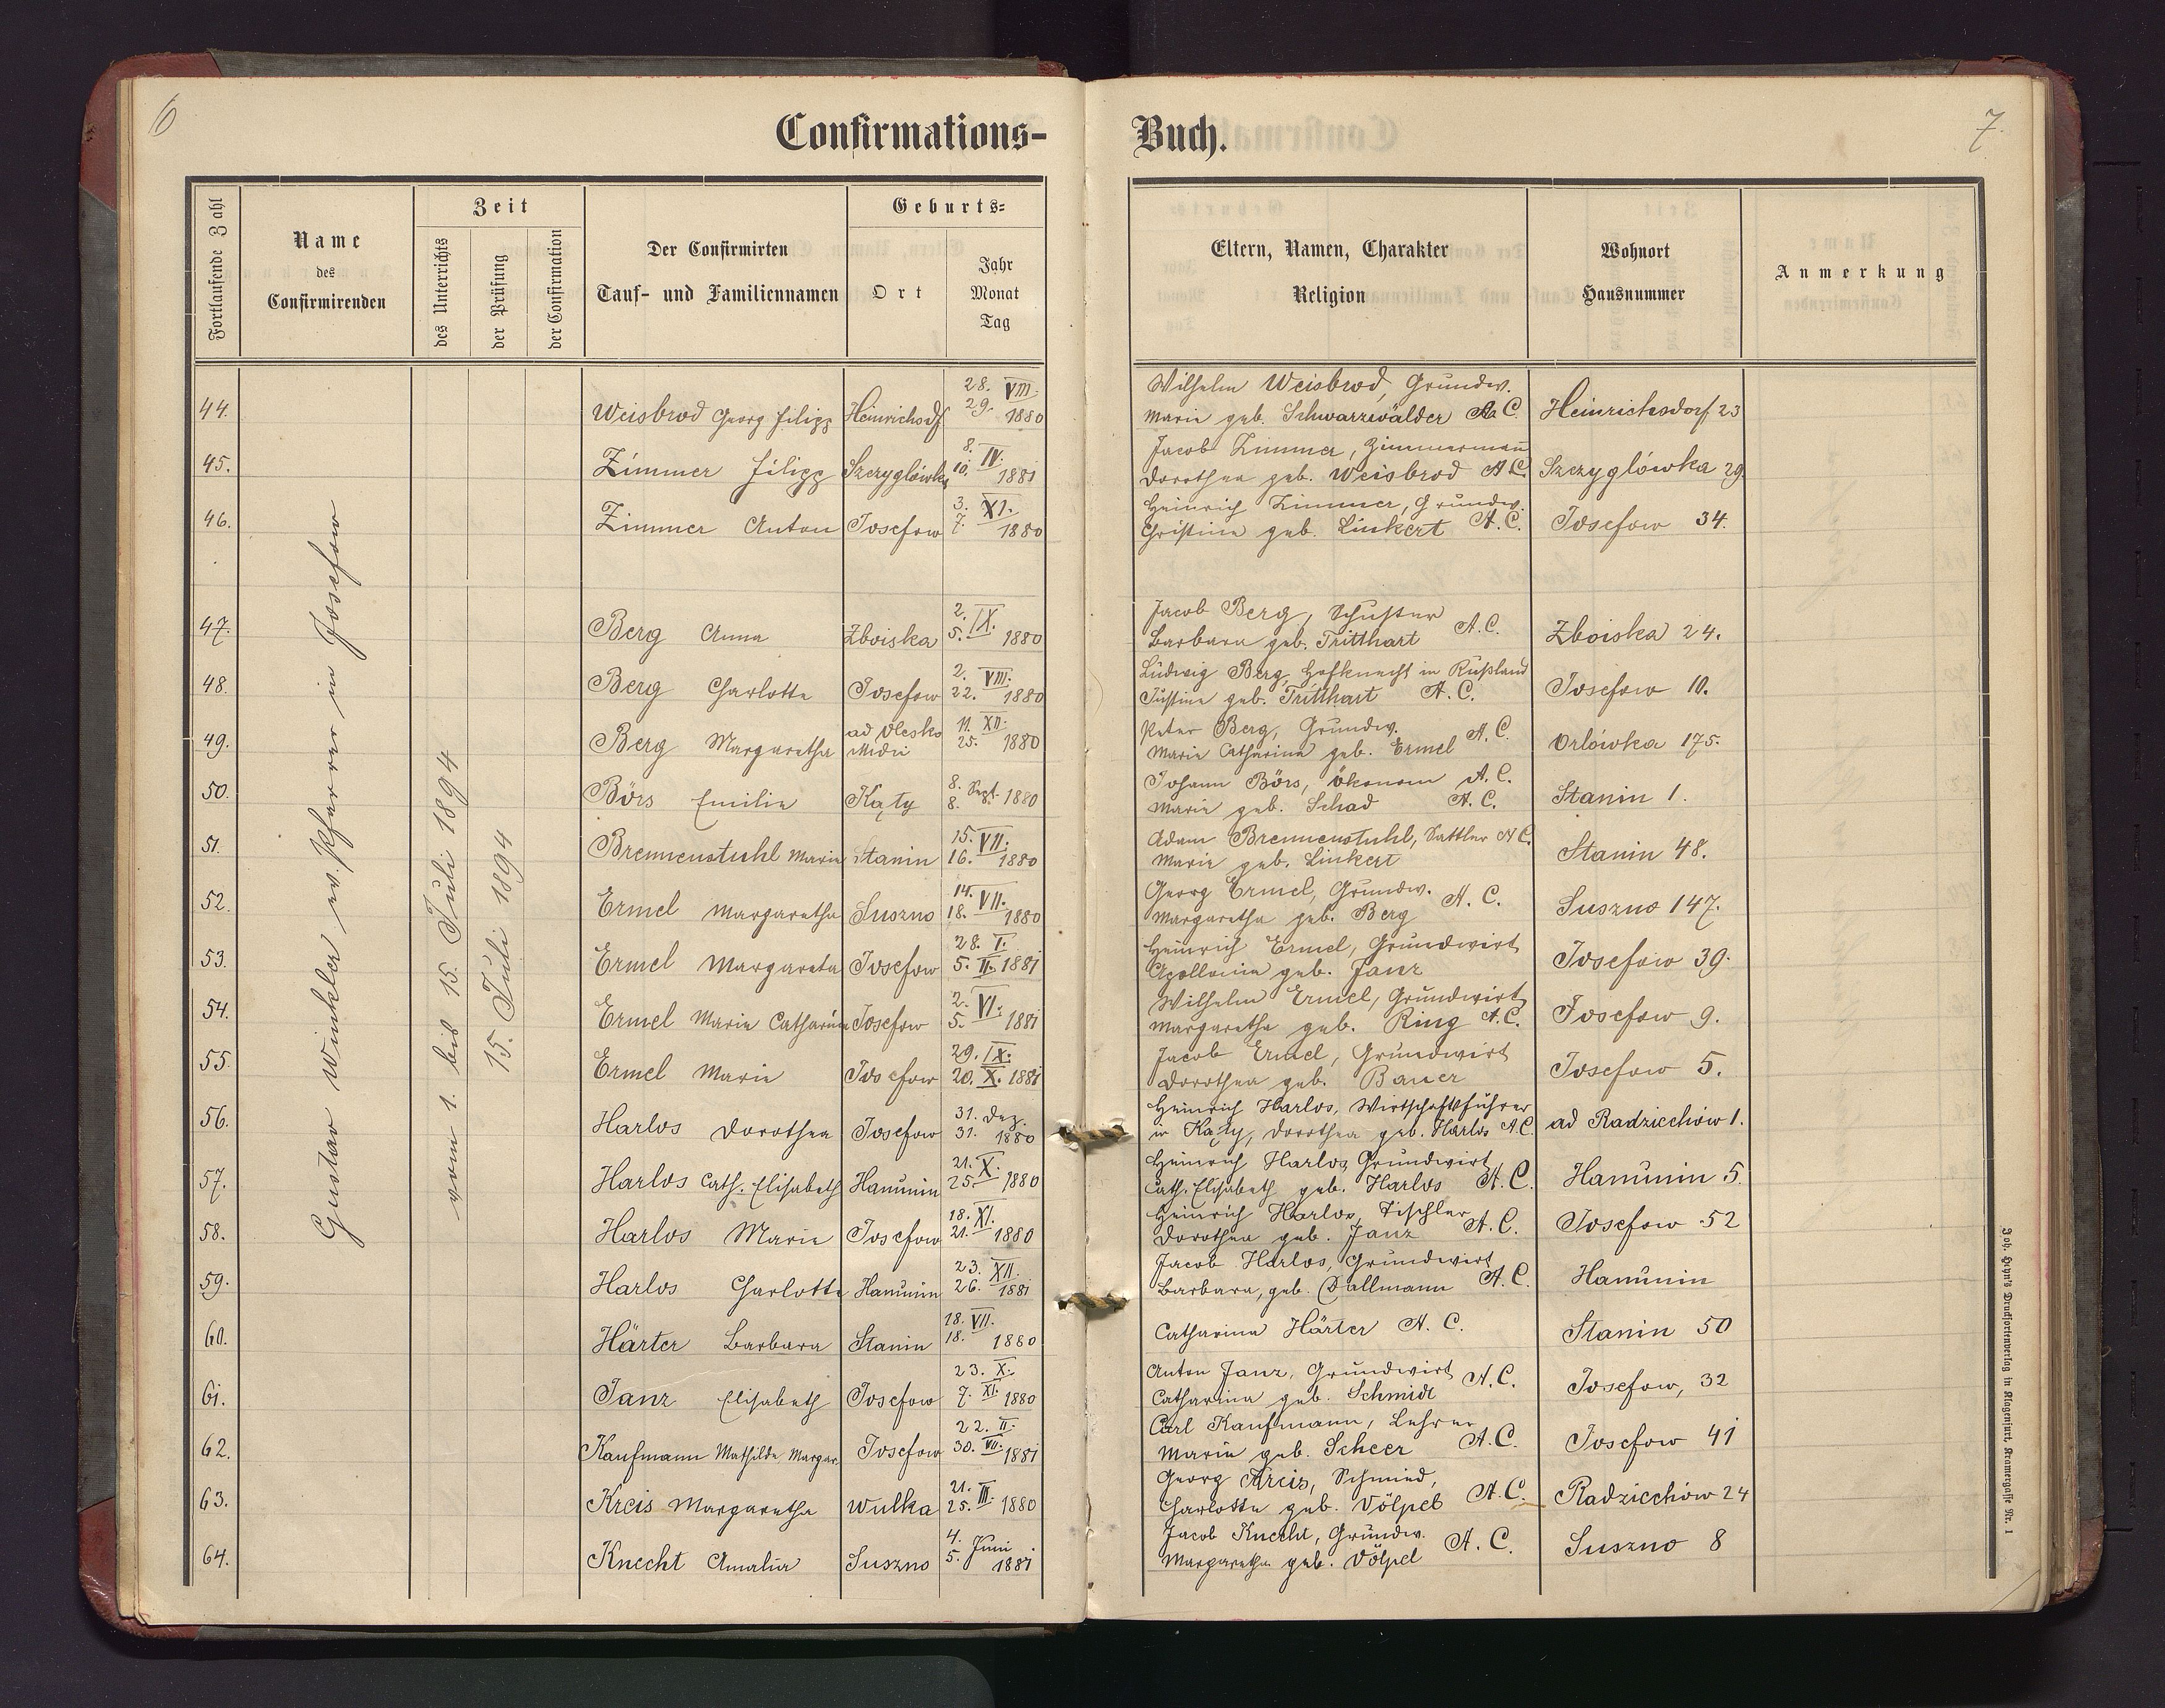 6
Confirmations-
Fortlaufende Zahl
Name
des
Confirmirenden
Zeit
des Unterrichts
der Prüfung
der Confirmation
Der Confirmirten
Tauf- und Familiennamen
Geburts-
Ort
Jahr
Monat
Tag
Gustav Winkler, ev. Pfarrer in Josefow
vom 1. bis 15. Juli 1894
15. Juli 1894
44. Weisbrod Georg Filipp Heinrichsdf. 28. 29. VIII. 1880
45. Zimmer Filipp Szczyglówka 8. 10. IV. 1881
46. Zimmer Anton Josefow 3. 7. XI. 1880
47. Berg Anna Zboiska 2. 5. IX. 1880
48. Berg Charlotte Josefow 2. 22. VIII. 1880
49. Berg Margaretha ad Olesko 11. 25. XII. 1880
50. Börs Emilie Kąty 8. 8. Sept. 1880
51. Brennenstuhl Marie Stanin 15. 16. VII. 1880
52. Ermel Margaretha Suszno 14. 18. VII. 1880
53. Ermel Margareta Josefow 28. I. 5. II. 1881
54. Ermel Marie Catharina Josefow 2. 5. VI. 1881
55. Ermel Marie Josefow 29. IX. 20. X. 1881
56. Harlos Dorothea Josefow 31. 31. Dez. 1880
57. Harlos Cath. Elisabeth Hanunin 21. 25. X. 1880
58. Harlos Marie Josefow 18. 21. XI. 1880
59. Harlos Charlotte Hanunin 23. 26. XII. 1881
60. Härter Barbara Stanin 18. 18. VII. 1880
61. Janz Elisabeth Josefow 23. X. 7. XI. 1880
62. Kaufmann Mathilde Margar. Josefow 22. II. 30. VII. 1881
63. Kreis Margaretha Wulka 21. 25. III. 1880
64. Knecht Amalia Suszno 4. 5. Juni 1881
7.
Buch.
Eltern, Namen, Charakter
Religion
Wohnort
Hausnummer
Anmerkung
Wilhelm Weisbrod, Grundw.
Marie geb. Schwarzwälder A. C. Heinrichsdorf 23
Jacob Zimmer, Zimmermann
Dorothea geb. Weisbrod A. C. Szczyglówka 29.
Heinrich Zimmer, Grundw.
Christine geb. Linkert A. C. Josefow 34.
Jacob Berg, Schuster
Barbara geb. Tritthart A. C. Zboiska 24.
Ludwig Berg, Hofknecht in Rußland
Justine geb. Tritthart A. C. Josefow 10.
Peter Berg, Grundw.
Marie Catharina geb. Ermel A. C. Orlówka 175.
Johann Börs, Ökonom A. C.
Marie geb. Schad A. C. Stanin 1.
Adam Brennenstuhl, Sattler A. C.
Marie geb. Linkert Stanin 48.
Georg Ermel, Grundw.
Margaretha geb. Berg A. C. Suszno 147.
Heinrich Ermel, Grundwirt
Apollonia geb. Janz Josefow 39.
Wilhelm Ermel, Grundwirt
Margaretha geb. Ring A. C. Josefow 9.
Jacob Ermel, Grundwirt
Dorothea geb. Bauer Josefow 5.
Heinrich Harlos, Wirtschaftsführer
in Kąty, Dorothea geb. Harlos A. C. ad Radziechów 1.
Heinrich Harlos, Grundwirt
Cath. Elisabeth geb. Harlos A. C. Hanunin 5.
Heinrich Harlos, Tischler
Dorothea geb. Janz A. C. Josefow 52
Jacob Harlos, Grundwirt
Barbara, geb. Dallmann A. C. Hanunin
Catharina Härter A. C. Stanin 50
Anton Janz, Grundwirt
Catharina geb. Schmidt A. C. Josefow, 32
Carl Kaufmann, Lehrer
Marie geb. Scheer A. C. Josefow 41
Georg Kreis, Schmied,
Charlotte geb. Völpel A. C. Radziechów 24
Jacob Knecht, Grundw.
Margaretha geb. Völpel A. C. Suszno 8
Joh. Heyn's Drucksortenverlag in Klagenfurt, Kramergasse Nr. 1